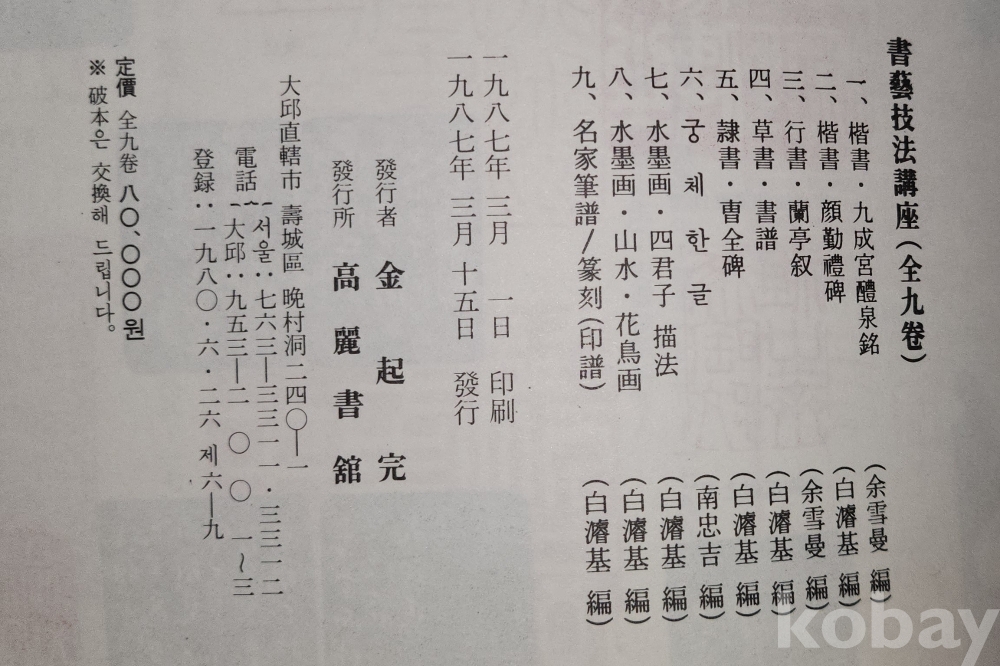 書藝技法講座(全九卷)
一、楷書·九成宮醴泉銘 (余雪曼 編)
二、楷書·顔勤禮碑 (白濬基 編)
三、行書·蘭亭叙 (余雪曼 編)
四、草書·書譜 (白濬基 編)
五、隷書·曺全碑 (白濬基 編)
六、궁체 한글 (南忠吉 編)
七、水墨画·四君子 描法 (白濬基 編)
八、水墨画·山水·花鳥画 (白濬基 編)
九、名家筆譜/篆刻(印譜) (白濬基 編)
一九八七年 三月 一日 印刷
一九八七年 三月 十五日 發行
發行者 金起完
發行所 高麗書舘
大邱直轄市 壽城區 晩村洞 二四〇—一
電話 서울:七六三—三三一一·三三一二
大邱:九五三—二〇〇一~三
登録:一九八〇·六·二六 제六—九
定價 全九卷 八〇,〇〇〇원
※ 破本은 交換해 드립니다。
kobay